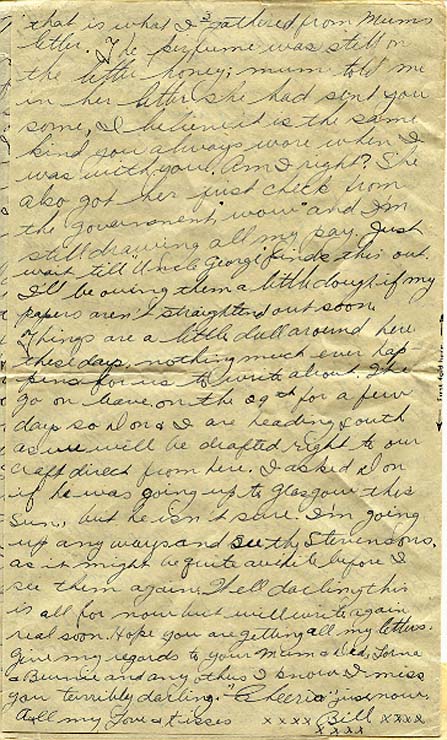 that is what I gathered from Mums
letter. The perfume was still on
the letter honey; mum told me
in her letter she had sent you
some, I believe it is the same
kind you always wore when I
was with you. Am I right? She
also got her first check from
the government "wow" and I'm
still drawing all my pay. Just
wait till "Uncle George" finds this out.
I'll be owing them a little dough if my
papers aren't straightend out soon.
Things are a little dull around here
these days, nothing much ever hap-
pens for us to write about. We
go on leave on the 29th for a few
days so Don & I are heading south
as we will be drafted right to our
craft direct from here. I asked Don
if he was going up to Glasgow this
Sun., but he isn't sure. I'm going
up any ways and see the Stevensons,
as it might be quite awhile before I
see them again. Well darling this
is all for now but will write again
real soon. Hope you are getting all my letters.
Give my regards to your Mum & Dad, Lorna
& Bunnie and any others I know. I miss
you terribly darling. "Cheerio" just now.
All my Love & Kisses xxxx Bill xxxx
xxxx